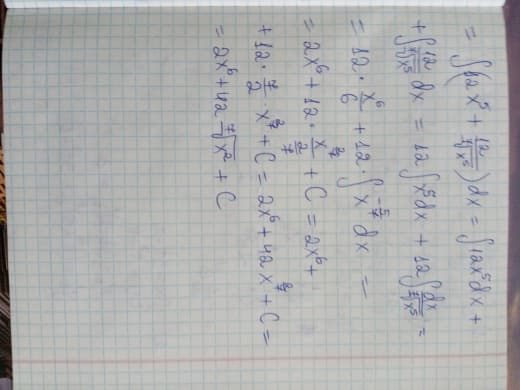 = ∫(12x⁵ + 12/⁷√x⁵)dx = ∫12x⁵dx +
+ ∫12/⁷√x⁵ dx = 12∫x⁵dx + 12∫dx/⁷√x⁵ =
= 12 · x⁶/6 + 12 · ∫x^(-5/7) dx =
= 2x⁶ + 12 · x^(2/7)/(2/7) + C = 2x⁶ +
+ 12 · 7/2 · x^(2/7) + C = 2x⁶ + 42x^(2/7) + C =
= 2x⁶ + 42 ⁷√x² + C